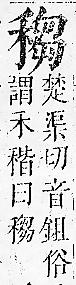 䅳
楚渠切音鉏俗
謂禾稭曰䅳